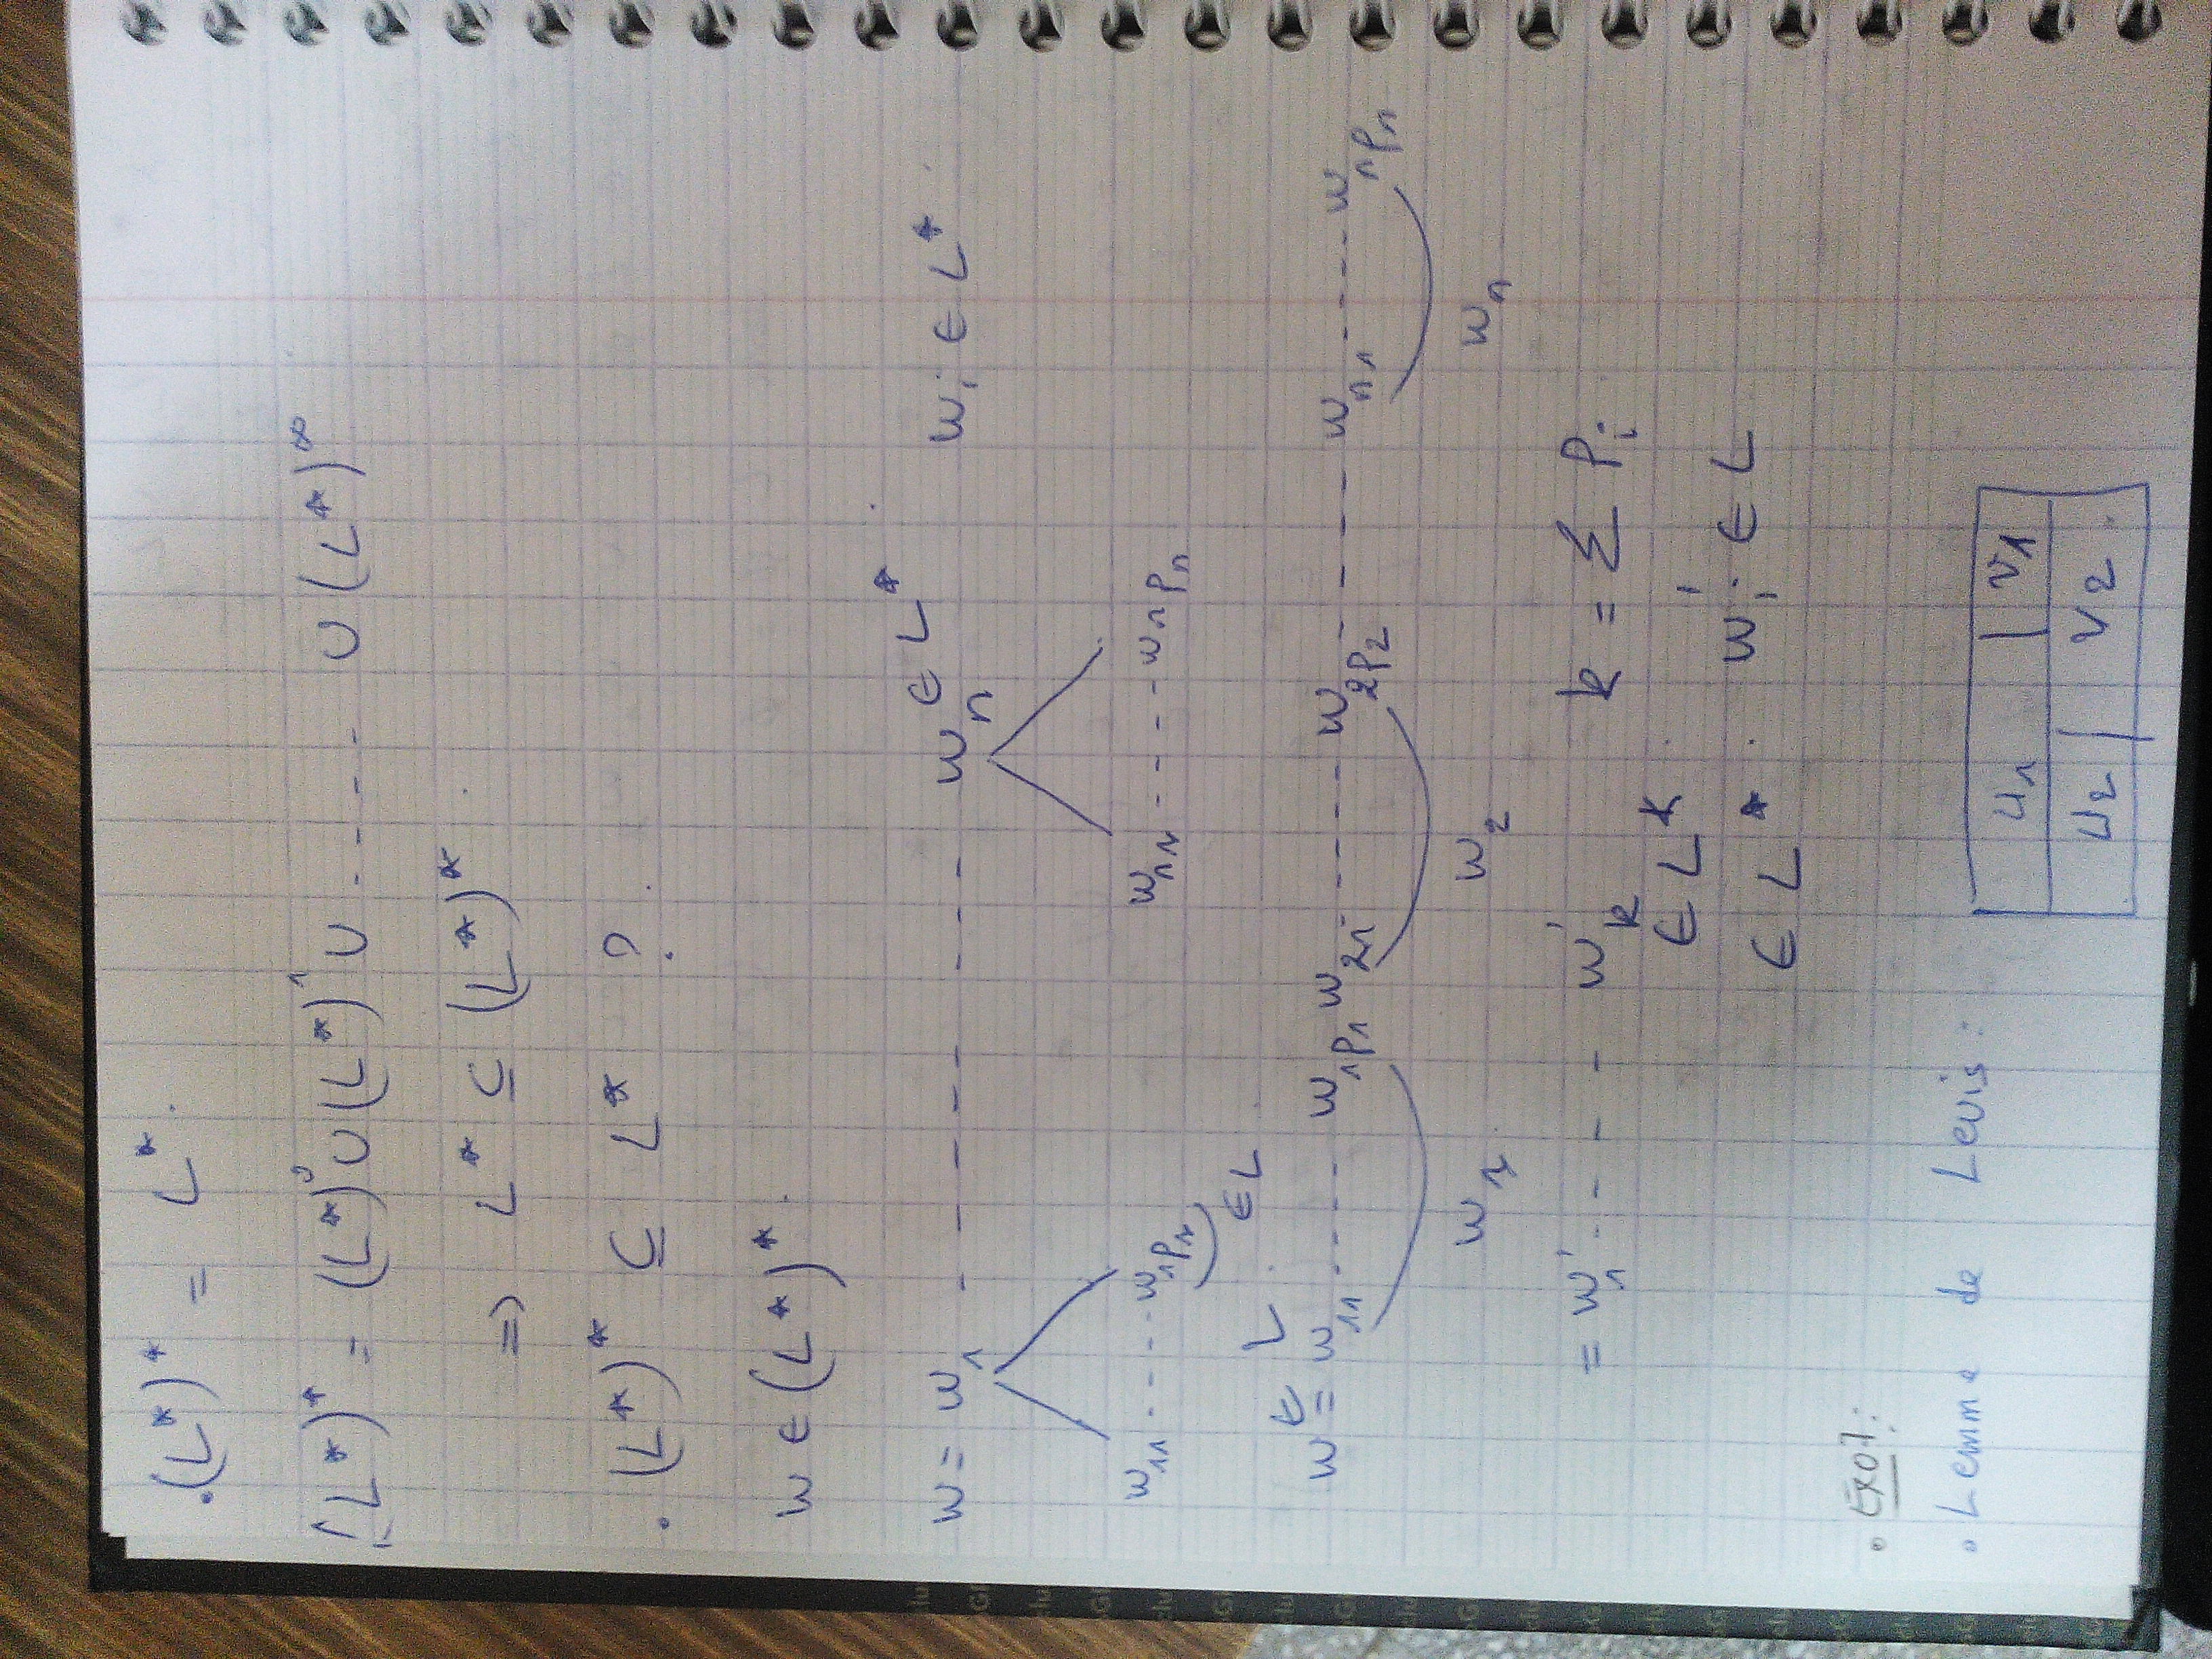 .(L*)* = L*.
(L*)* = (L*)⁰ ∪ (L*)¹ ∪ - - - - ∪ (L*)^∞
=> L* ⊆ (L*)*.
. (L*)* ⊆ L* ? .
w ∈ (L*)*.
w = w₁ - - - - - - - - w_n ∈ L* w_i ∈ L*
w₁₁ - - - - w_1p₁ w_n1 - - - - w_np_n
∈ L
∈ L .
w = w₁₁ - - - - w_1p₁ w₂₁ - - - - - w_2p₂ - - - - w_n1 - - - - w_np_n
w₁ . w₂ w_n
= w'₁ - - - - w'_k k = Σ P_i
∈ L^k .
∈ L* . w'_i ∈ L
. Exo 7:
. Lemme de Levis :
u₁ | v₁
u₂ | v₂